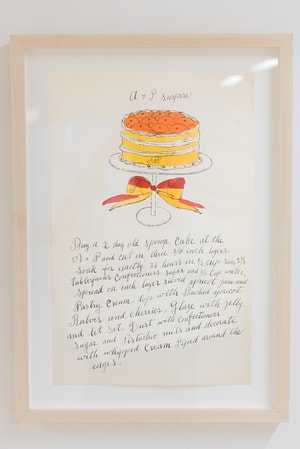 A + P Surprise
Buy a 2 day old sponge cake at the
A + P and cut in three 3/4 inch layers.
Soak for exactly 36 hours in 1/2 cup rum,
tablespoons confectioners sugar and 1/2 cup water,
spread on each layer sieved apricot jam and
Pastry cream. Top with Poached apricot
Halves and cherries. Glaze with jelly
and let set. Dust with confectioners
sugar and Pistachio nuts and decorate
with whipped cream Piped around the
edges.